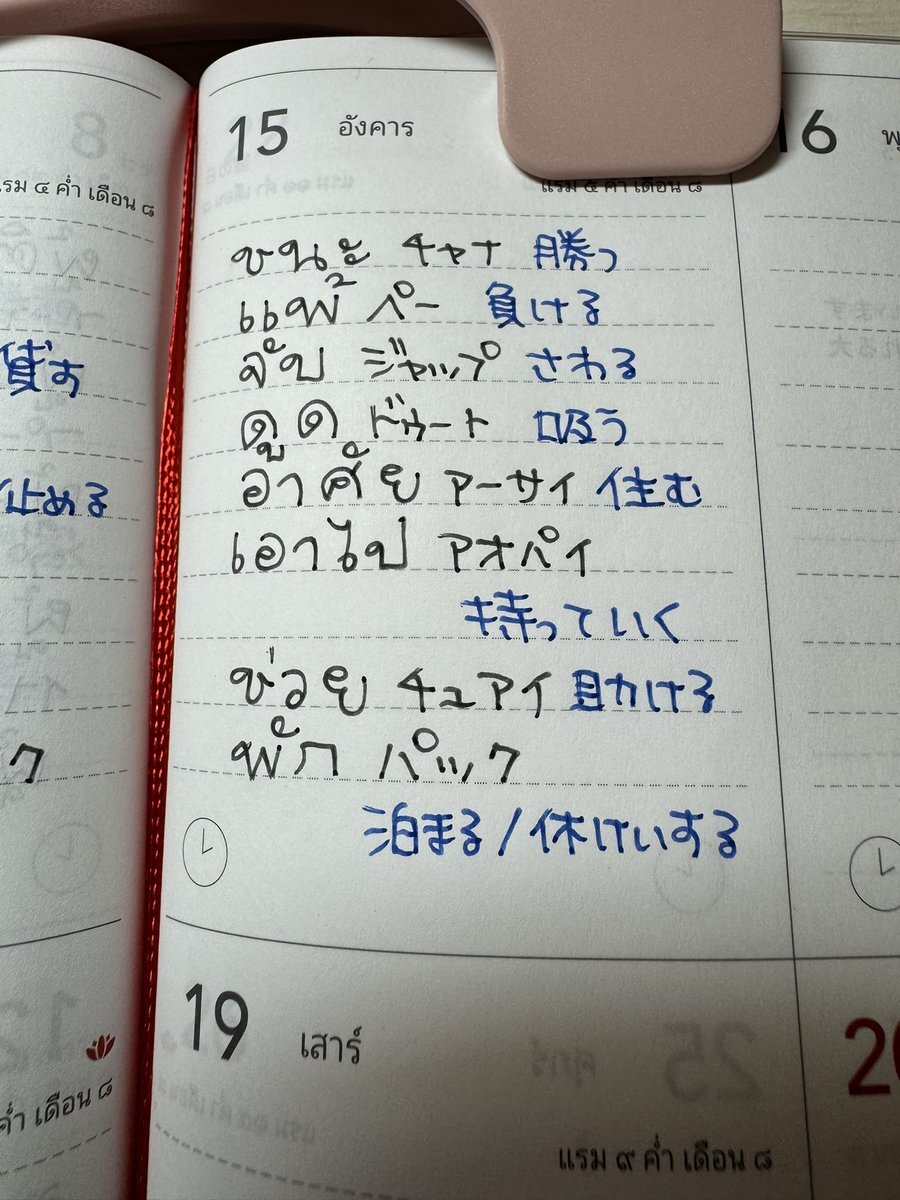 8
แรม ๔ ค่ำ เดือน ๘
貸す
止める
ク
ค่ำ เดือน ๘
15 อังคาร
แรม ๕ ค่ำ เดือน ๘
ชนะ チャナ 勝つ
แพ้ パー 負ける
จับ ジャップ さわる
ดูด ドゥート 吸う
อาศัย アーサイ 住む
เอาไป アオパイ
持っていく
ช่วย チュアイ 助ける
พัก パック
泊まる/休けいする
19 เสาร์
แรม ๙ ค่ำ เดือน ๘
16
20
25 ศุกร์